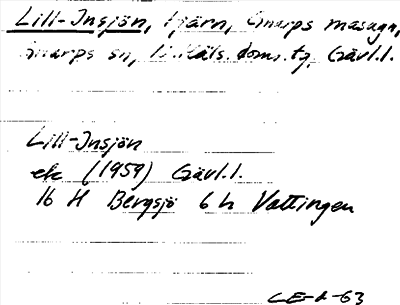 Lill-Insjön, tjärn, Gnarps masugn,
Gnarps sn, doms.tg, Gävl.l.
Lill-Insjön
ek (1959) Gävl.l.
16 H Bergsjö 6 h Vattingen